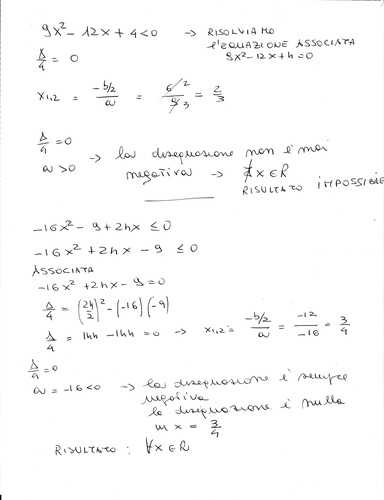 9x² - 12x + 4 < 0 → RISOLVIAMO
l'EQUAZIONE ASSOCIATA
9x² - 12x + 4 = 0
Δ/4 = 0
x1,2 = (-b/2)/a = 6/9 = 2/3
Δ/4 = 0
a > 0 → la disequazione non è mai
negativa → ∄ x ∈ R
RISULTATO IMPOSSIBILE
-16x² - 9 + 24x ≤ 0
-16x² + 24x - 9 ≤ 0
ASSOCIATA
-16x² + 24x - 9 = 0
Δ/4 = (24/2)² - (-16)(-9)
Δ/4 = 144 - 144 = 0 → x1,2 = (-b/2)/a = -12/-16 = 3/4
Δ/4 = 0
a = -16 < 0 → la disequazione è sempre
negativa
la disequazione è nulla
in x = 3/4
RISULTATO : ∀x ∈ R